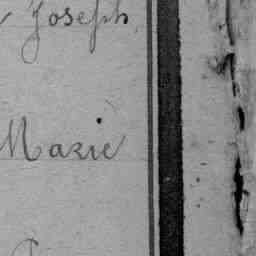 Joseph
Marie